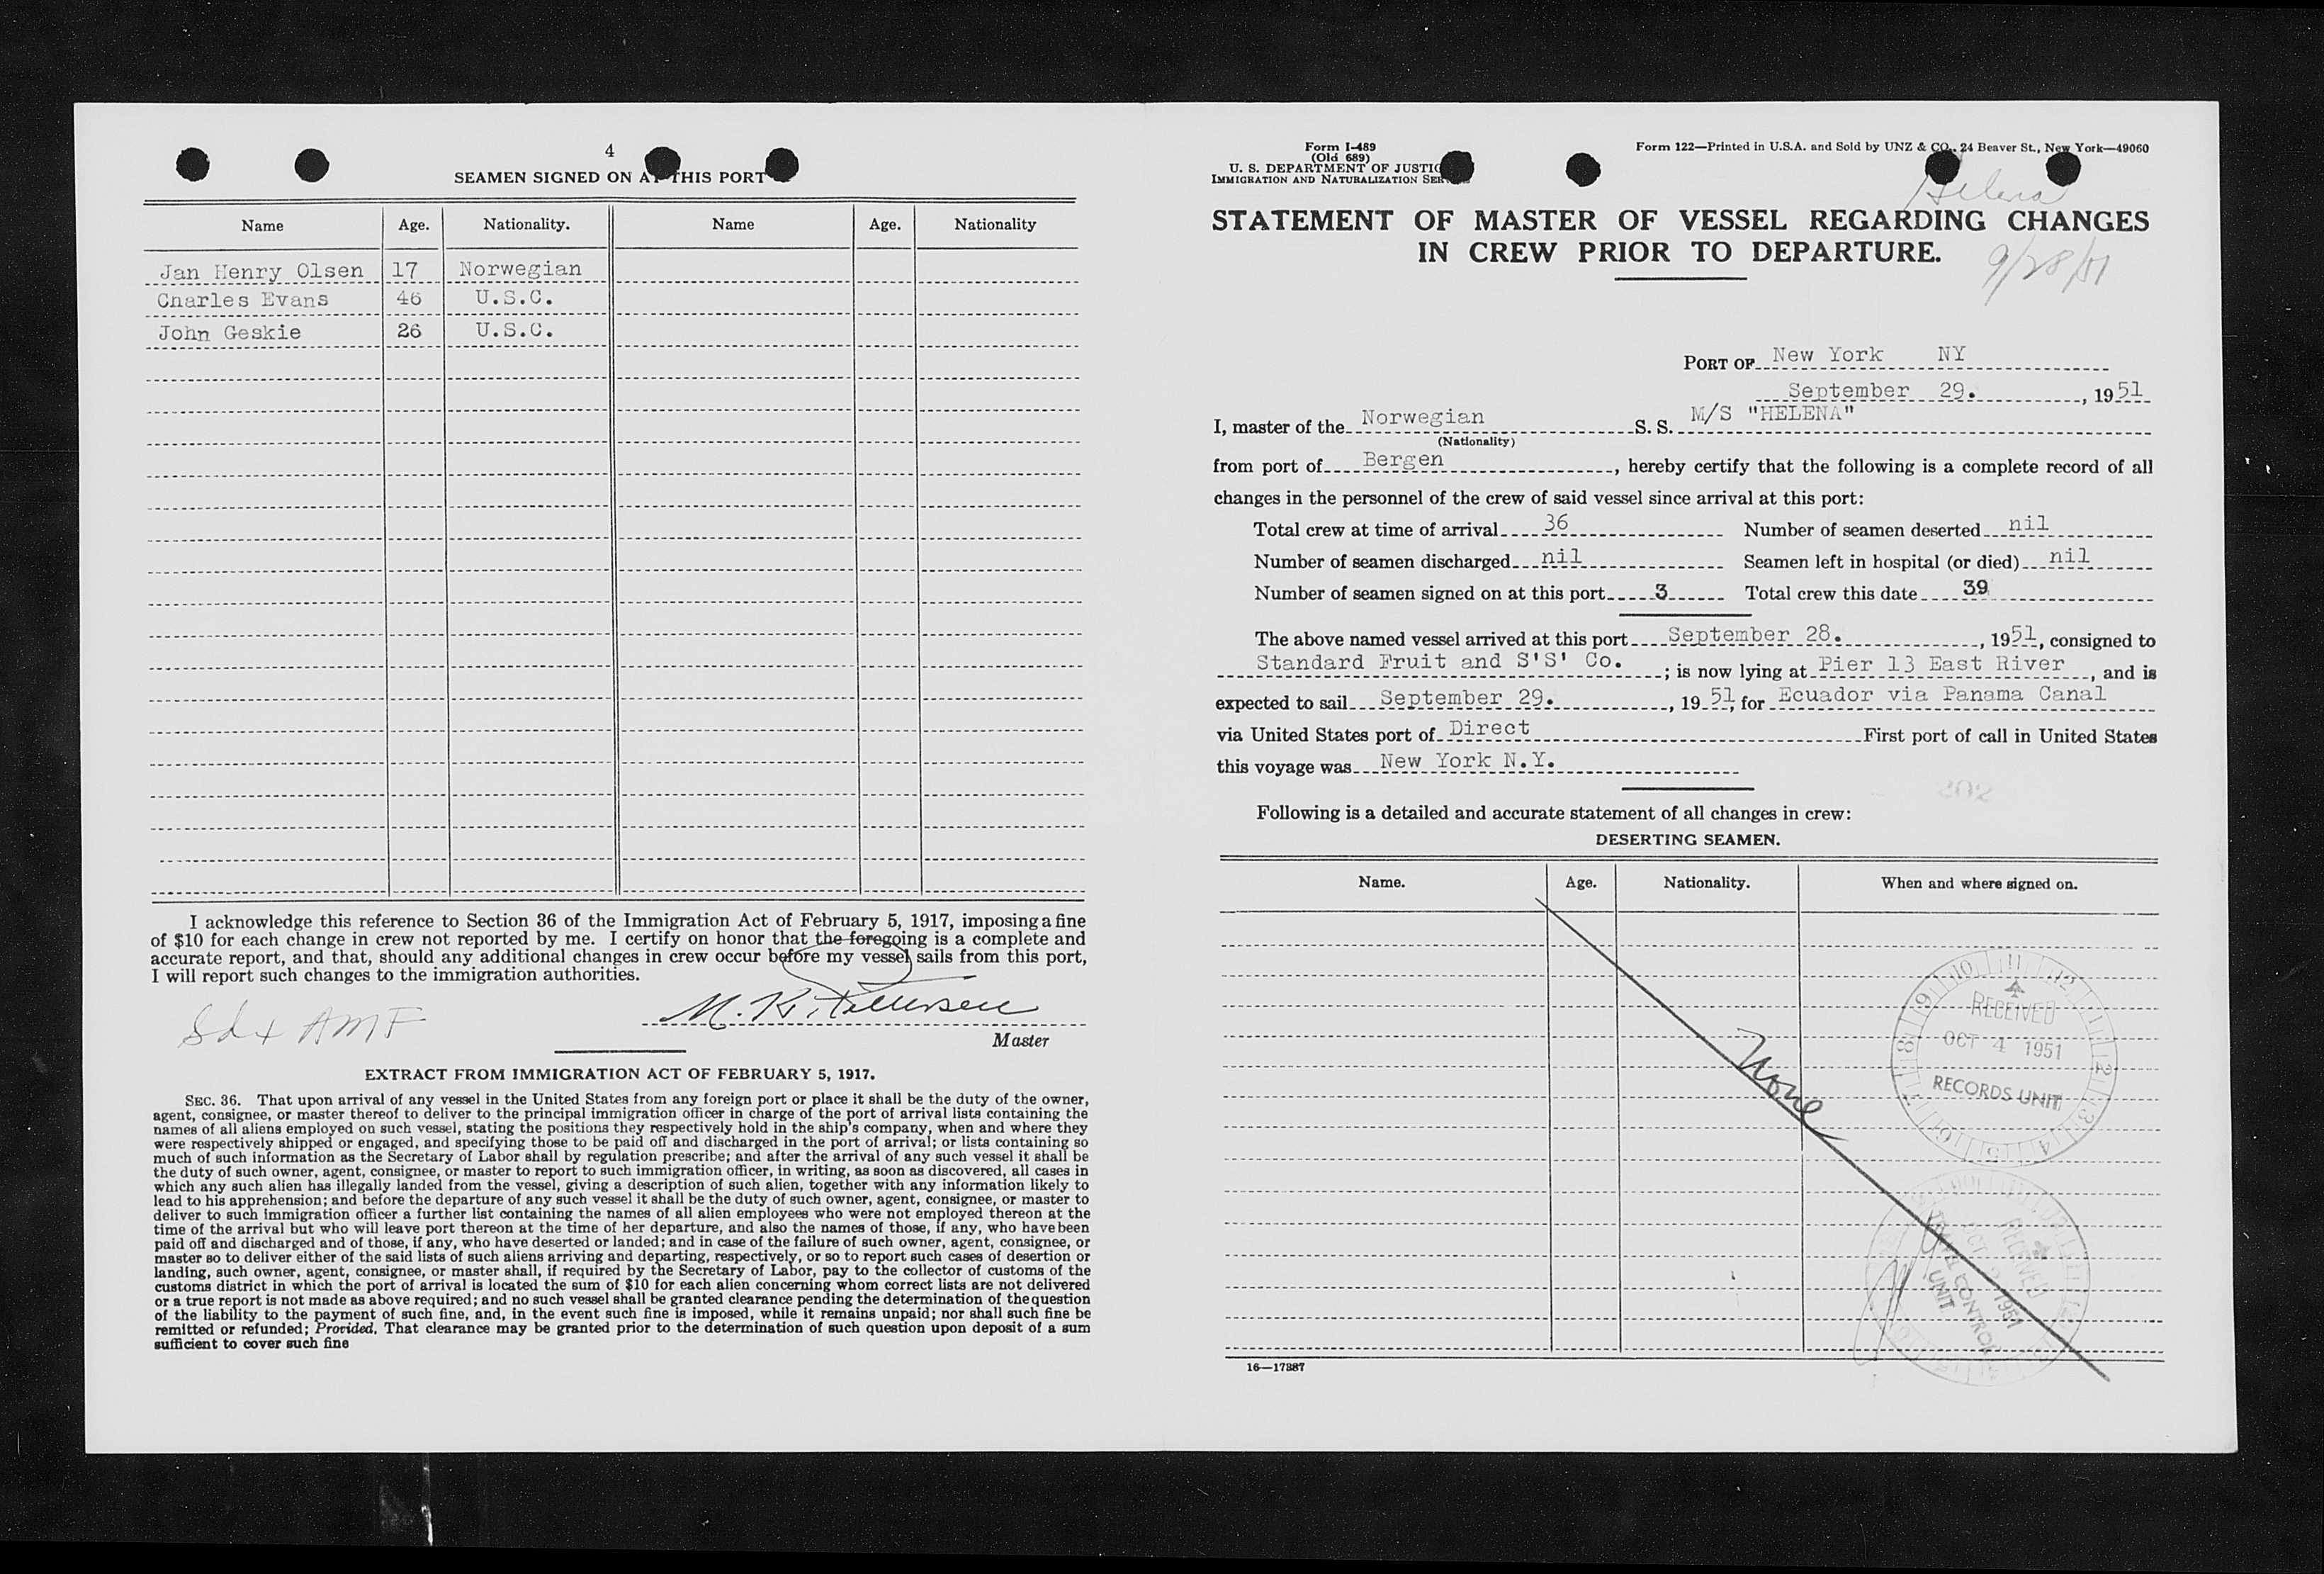 4
SEAMEN SIGNED ON AT THIS PORT
Name Age. Nationality. Name Age. Nationality
Jan Henry Olsen 17 Norwegian
Charles Evans 46 U.S.C.
John Geskie 26 U.S.C.
I acknowledge this reference to Section 36 of the Immigration Act of February 5, 1917, imposing a fine
of $10 for each change in crew not reported by me. I certify on honor that the foregoing is a complete and
accurate report, and that, should any additional changes in crew occur before my vessel sails from this port,
I will report such changes to the immigration authorities.
AMF
M. K. Pettersen
Master
EXTRACT FROM IMMIGRATION ACT OF FEBRUARY 5, 1917.
SEC. 36. That upon arrival of any vessel in the United States from any foreign port or place it shall be the duty of the owner,
agent, consignee, or master thereof to deliver to the principal immigration officer in charge of the port of arrival lists containing the
names of all aliens employed on such vessel, stating the positions they respectively hold in the ship's company, when and where they
were respectively shipped or engaged, and specifying those to be paid off and discharged in the port of arrival; or lists containing so
much of such information as the Secretary of Labor shall by regulation prescribe; and after the arrival of any such vessel it shall be
the duty of such owner, agent, consignee, or master to report to such immigration officer, in writing, as soon as discovered, all cases in
which any such alien has illegally landed from the vessel, giving a description of such alien, together with any information likely to
lead to his apprehension; and before the departure of any such vessel it shall be the duty of such owner, agent, consignee, or master to
deliver to such immigration officer a further list containing the names of all alien employees who were not employed thereon at the
time of the arrival but who will leave port thereon at the time of her departure, and also the names of those, if any, who have been
paid off and discharged and of those, if any, who have deserted or landed; and in case of the failure of such owner, agent, consignee, or
master so to deliver either of the said lists of such aliens arriving and departing, respectively, or so to report such cases of desertion or
landing, such owner, agent, consignee, or master shall, if required by the Secretary of Labor, pay to the collector of customs of the
customs district in which the port of arrival is located the sum of $10 for each alien concerning whom correct lists are not delivered
or a true report is not made as above required; and no such vessel shall be granted clearance pending the determination of the question
of the liability to the payment of such fine, and, in the event such fine is imposed, while it remains unpaid; nor shall such fine be
remitted or refunded; Provided, That clearance may be granted prior to the determination of such question upon deposit of a sum
sufficient to cover such fine
Form I-489
(Old 689)
U. S. DEPARTMENT OF JUSTIC
IMMIGRATION AND NATURALIZATION SER
Form 122—Printed in U.S.A. and Sold by UNZ & CO., 24 Beaver St., New York—49060
Helena
STATEMENT OF MASTER OF VESSEL REGARDING CHANGES
IN CREW PRIOR TO DEPARTURE.
9/28/51
PORT OF New York NY
September 29. , 1951
I, master of the Norwegian S. S. M/S "HELENA"
(Nationality)
from port of Bergen , hereby certify that the following is a complete record of all
changes in the personnel of the crew of said vessel since arrival at this port:
Total crew at time of arrival 36 Number of seamen deserted nil
Number of seamen discharged nil Seamen left in hospital (or died) nil
Number of seamen signed on at this port 3 Total crew this date 39
The above named vessel arrived at this port September 28. , 1951, consigned to
Standard Fruit and S'S' Co. ; is now lying at Pier 13 East River , and is
expected to sail September 29. , 1951, for Ecuador via Panama Canal
via United States port of Direct First port of call in United States
this voyage was New York N.Y.
202
Following is a detailed and accurate statement of all changes in crew:
DESERTING SEAMEN.
Name. Age. Nationality. When and where signed on.
None
RECEIVED
OCT 4 1951
RECORDS UNIT
RECEIVED
OCT 1951
CONTROL
UNIT
16—17387